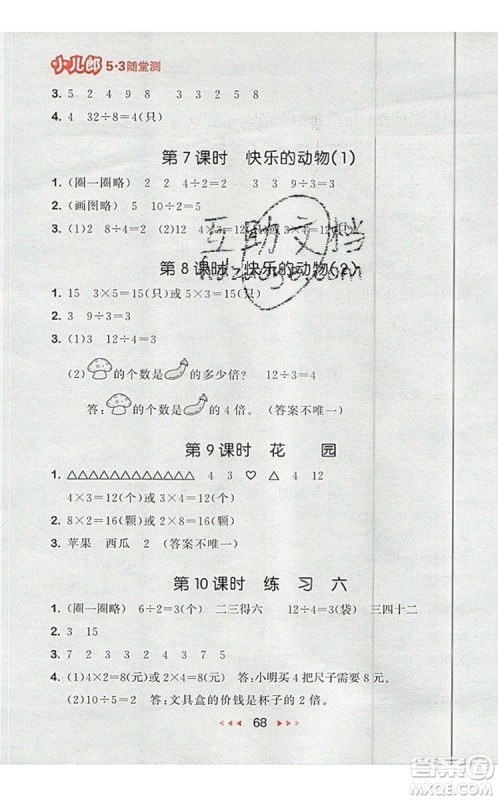 小儿郎 5·3随堂测
3. 5 2 4 9 8 3 3 2 5 8
4. 4 32÷8=4(只)
第7课时 快乐的动物(1)
1. (圈一圈略) 2 2 4÷2=2 3 3 9÷3=3
2. (画图略) 5 10÷2=5
3. (1)2 8÷4=2 (2)12 4×3=12(只)或3×4=12(只)
第8课时 快乐的动物(2)
1. 15 3×5=15(只)或5×3=15(只)
2. 3 9 3
3. (1)2 4÷2=2
(2) 的个数是 的多少倍? 12÷3=4
答: 的个数是 的4倍。(答案不唯一)
第9课时 花 园
1. △△△△△△△△△△△△ 4 3 ♡ △ 4 12
4×3=12(个)或3×4=12(个)
2. 8×2=16(颗)或2×8=16(颗)
3. 苹果 西瓜 2 (答案不唯一)
第10课时 练 习 六
1. (圈一圈略) 6÷2=3(个) 二三得六 12÷4=3(袋) 三四十二
2. 3 15
3. 7 2 8 2 4 7 3 5
4. (1)4×2=8(元)或2×4=8(元) 答:小明买4把尺子需要8元。
(2)10÷5=2 答:文具盒的价钱是杯子的2倍。
68
互助文档
作业帮